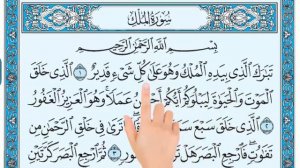 سُورَةُ المُلْكِ
بِسْمِ اللَّهِ الرَّحْمَٰنِ الرَّحِيمِ
تَبَٰرَكَ الَّذِي بِيَدِهِ الْمُلْكُ وَهُوَ عَلَىٰ كُلِّ شَيْءٍ قَدِيرٌ ١ الَّذِي خَلَقَ
الْمَوْتَ وَالْحَيَوٰةَ لِيَبْلُوَكُمْ أَيُّكُمْ أَحْسَنُ عَمَلًا وَهُوَ الْعَزِيزُ الْغَفُورُ
٢ الَّذِي خَلَقَ سَبْعَ تَرَىٰ فِي خَلْقِ الرَّحْمَٰنِ مِن
تَفَٰوُتٍ فَارْجِعِ الْبَصَرَ ٣ ثُمَّ ارْجِعِ الْبَصَرَ كَرَّتَيْنِ